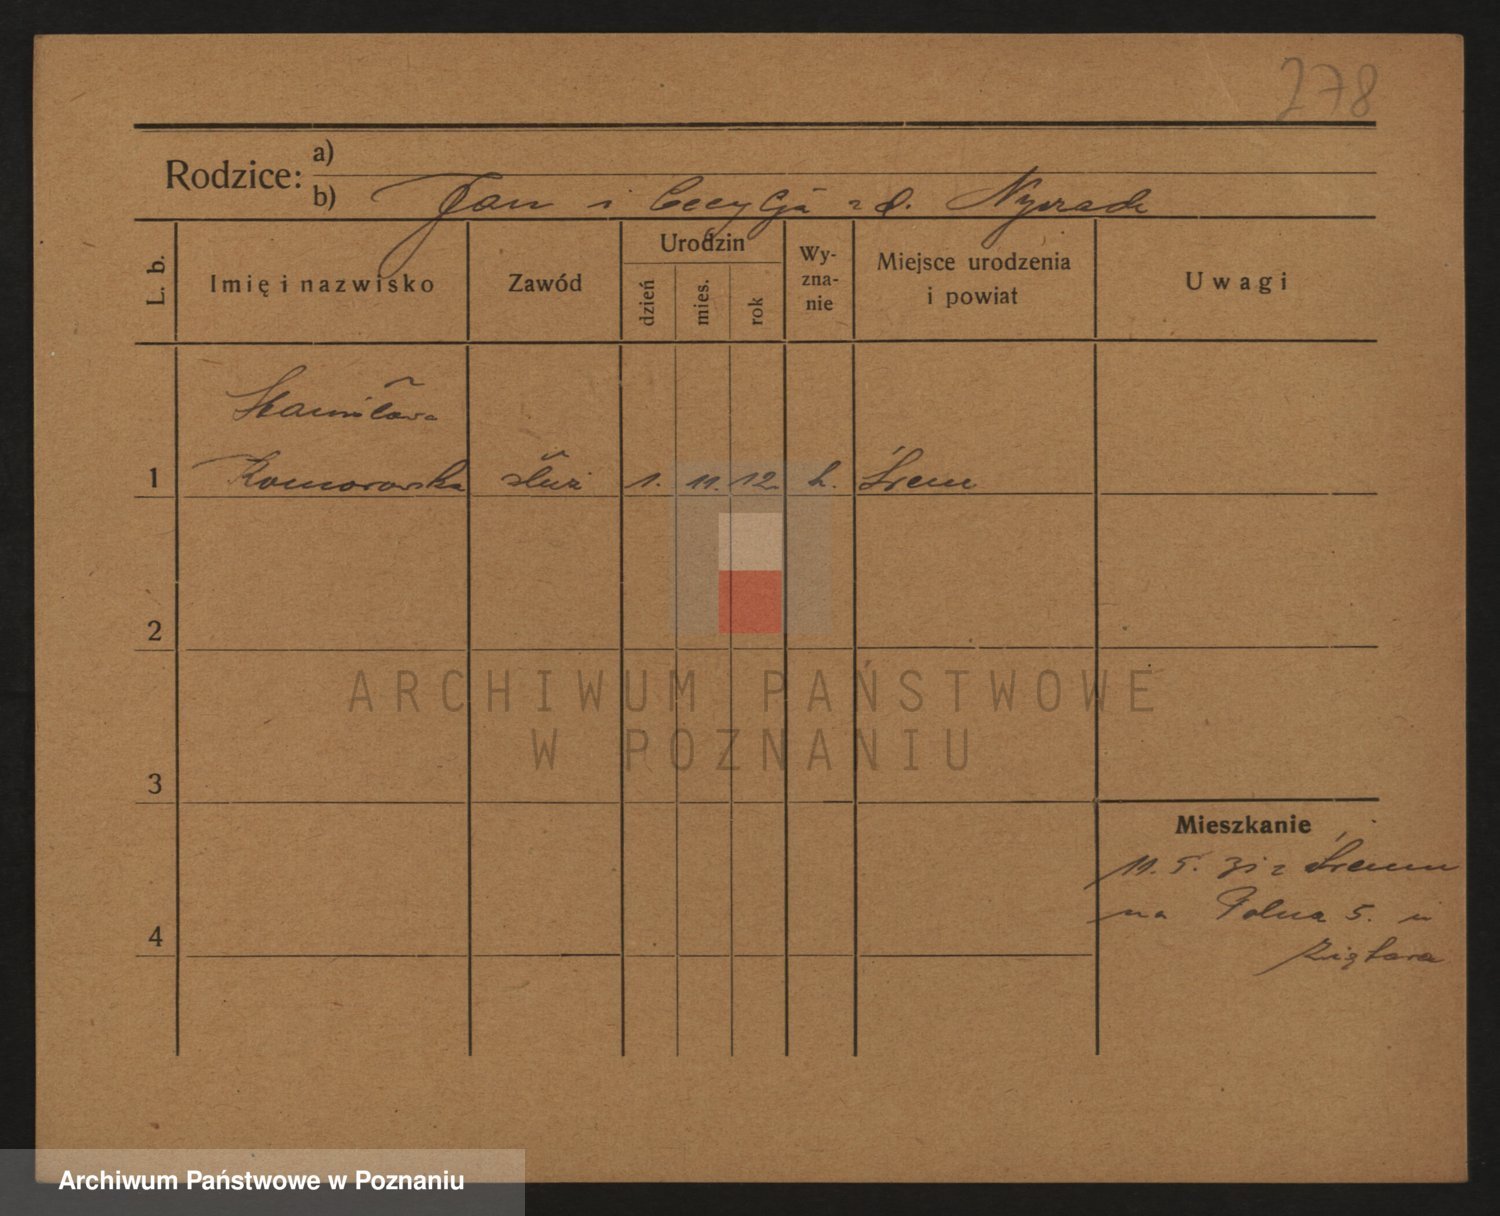 278
Rodzice: a)
b) Jan i Cecylja z d.
L. b. Imię i nazwisko Zawód Urodzin dzień mies. rok Wy-zna-nie Miejsce urodzenia i powiat Uwagi
Stanisława
1 Komorowska służ 1. 11. 12. k. Śrem
2
3
4
Mieszkanie
11. 5. 31 z Śremu
na Polna 5. u
ARCHIWUM PAŃSTWOWE
W POZNANIU
Archiwum Państwowe w Poznaniu